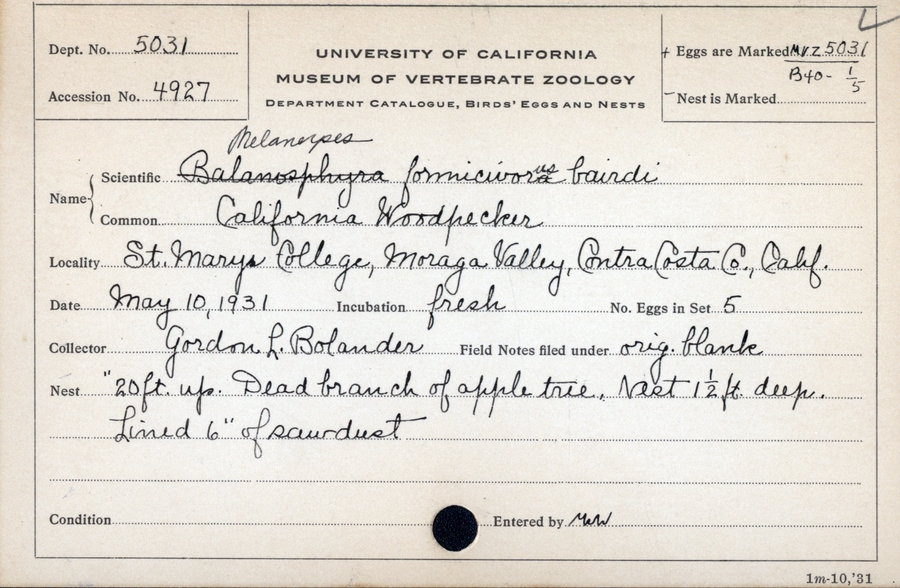 Dept. No. 5031
Accession No. 4927
UNIVERSITY OF CALIFORNIA
MUSEUM OF VERTEBRATE ZOOLOGY
DEPARTMENT CATALOGUE, BIRDS' EGGS AND NESTS
+ Eggs are Marked MVZ 5031
B40- 1/5
- Nest is Marked
Melanerpes
Name { Scientific Balanosphyra formicivorus bairdi
Common California Woodpecker
Locality St. Marys College, Moraga Valley, Contra Costa Co., Calif.
Date May 10, 1931 Incubation fresh No. Eggs in Set 5
Collector Gordon L. Bolander Field Notes filed under orig. blank
Nest "20 ft. up. Dead branch of apple tree. Nest 1½ ft. deep.
Lined 6" of sawdust
Condition Entered by
1m-10,'31